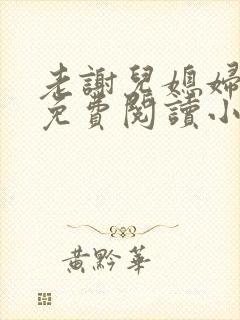 老謝兒媳婦
免費閱讀小
黃黔華